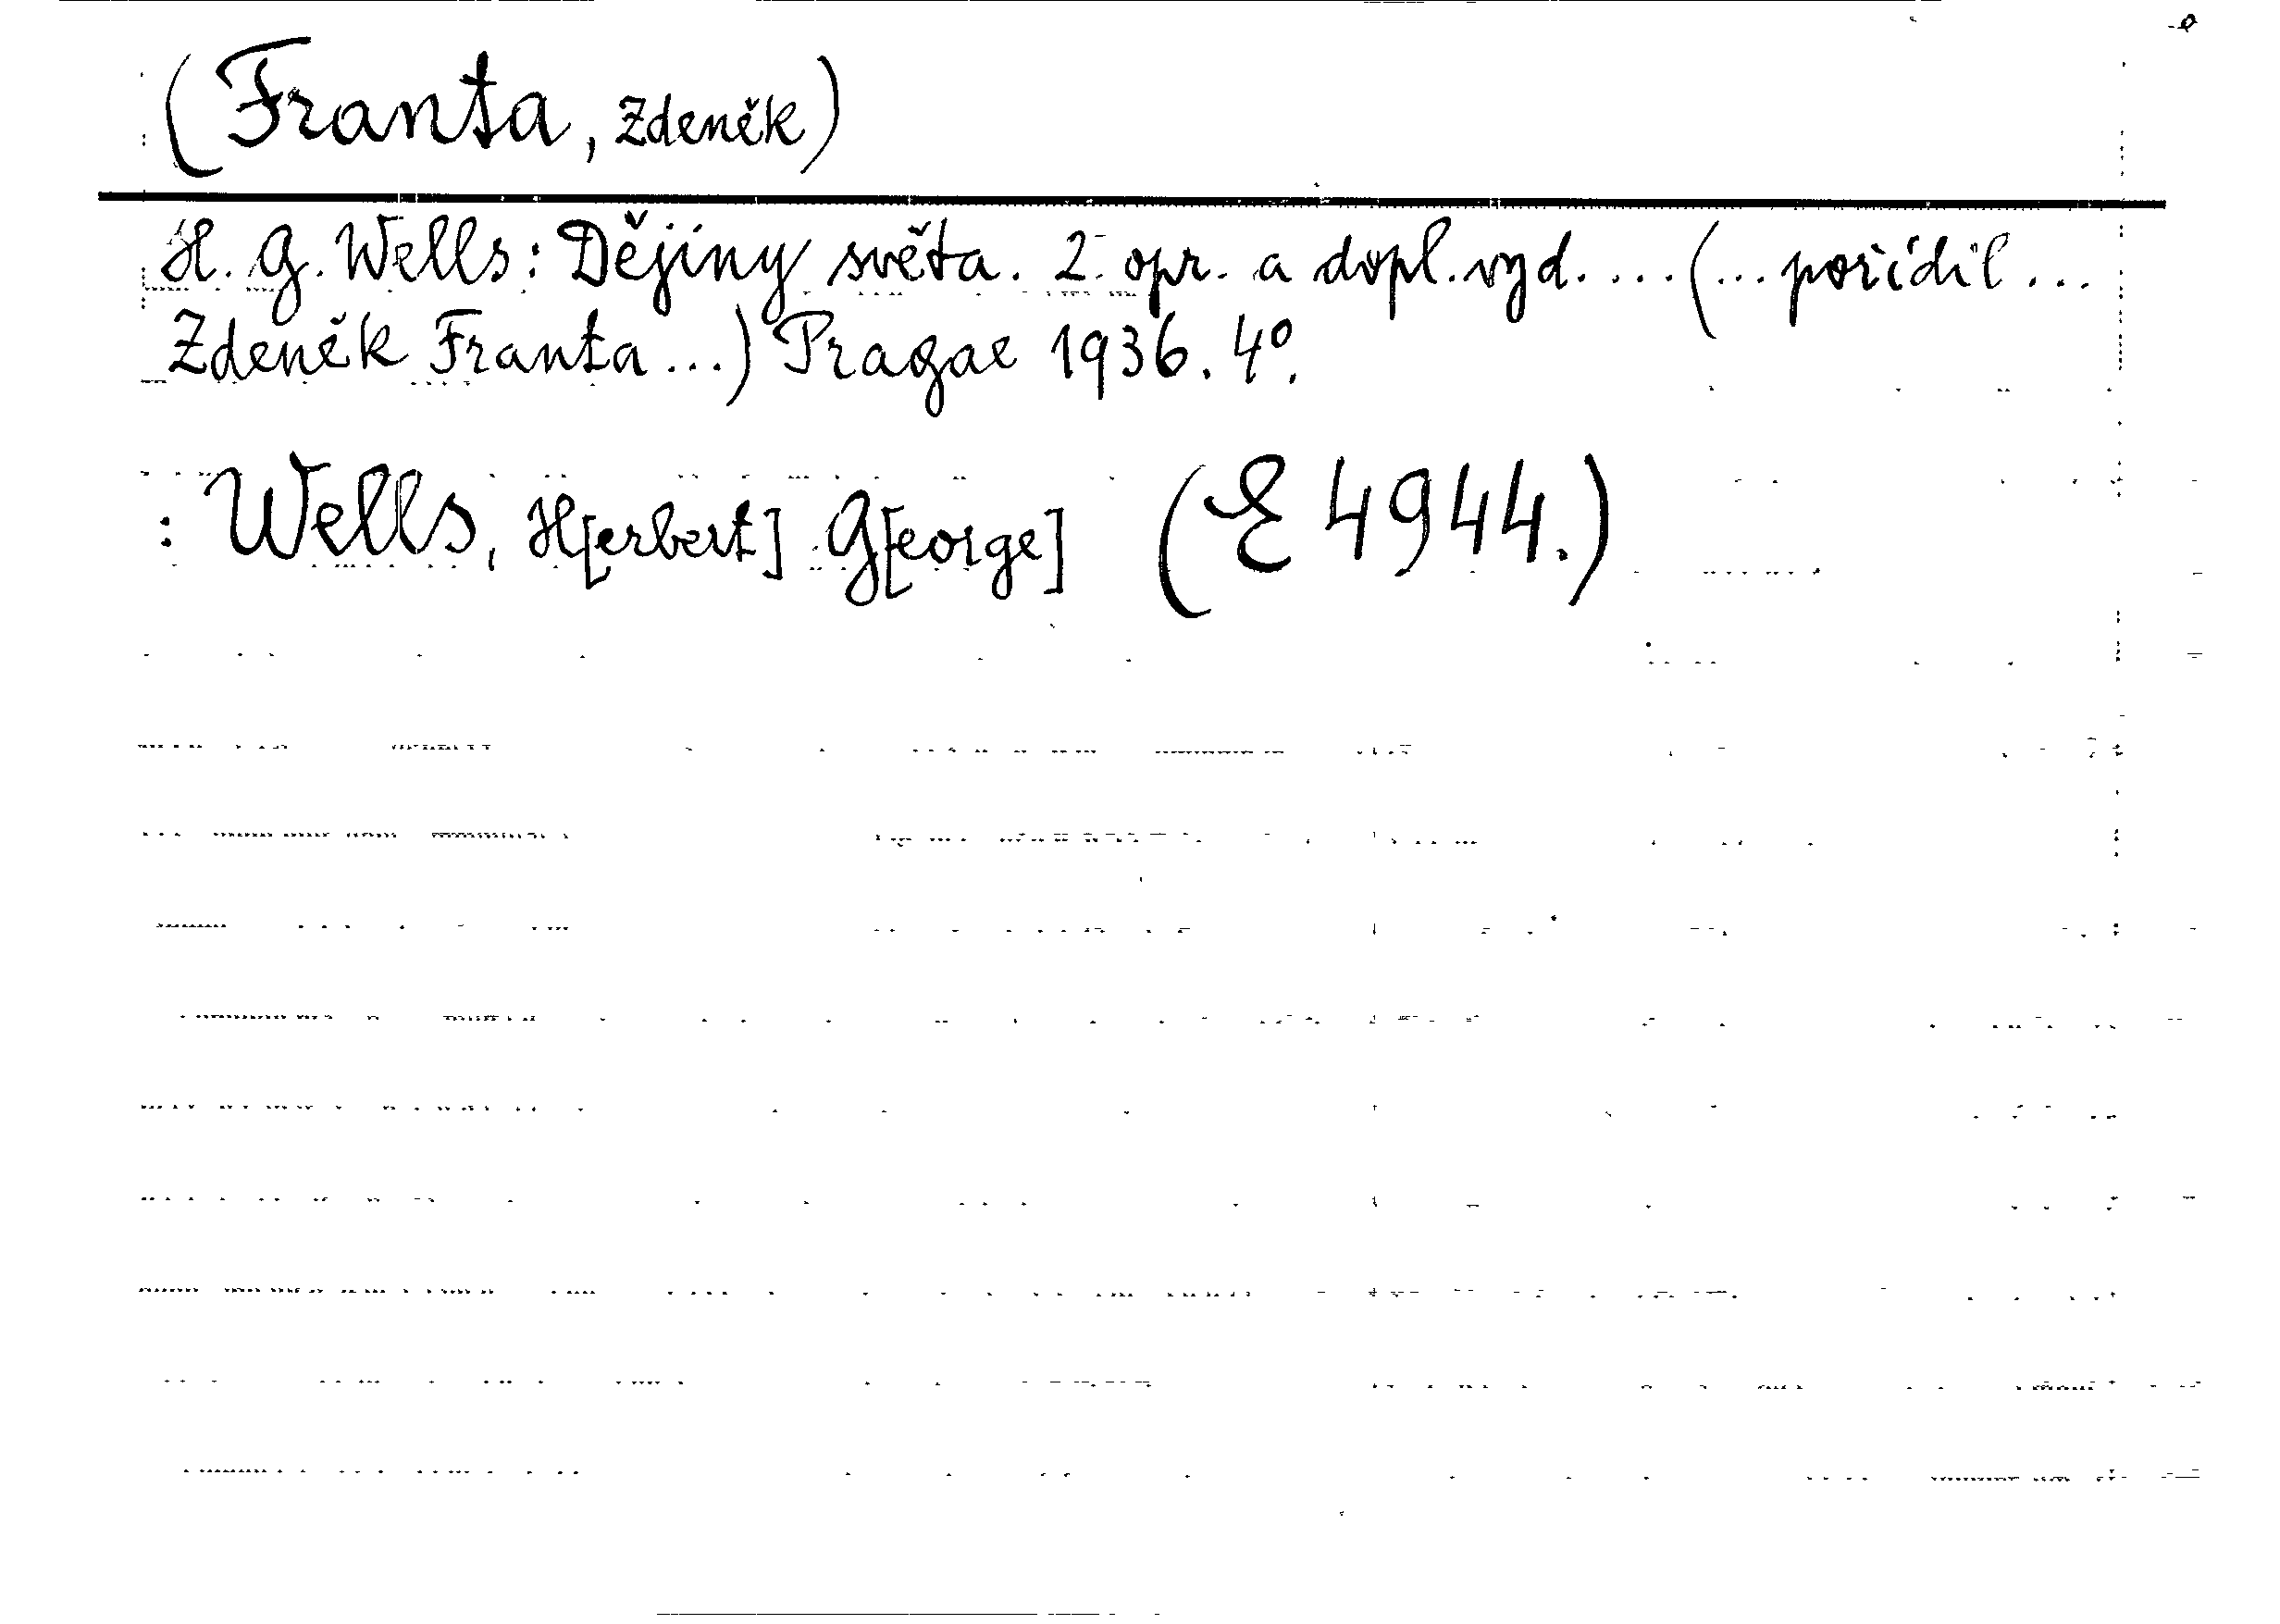 (Franta, Zdeněk)
H. G. Wells: Dějiny světa. 2. opr. a dopl. vyd. ... (... pořídil ...
Zdeněk Franta ...) Pragae 1936. 4º.
: Wells, H[erbert] G[eorge] (E 4944.)